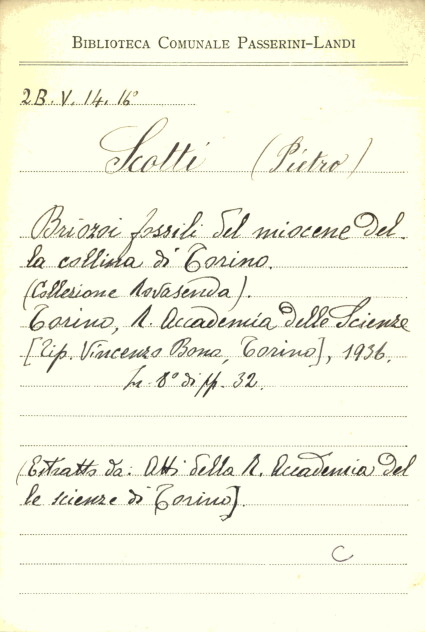 BIBLIOTECA COMUNALE PASSERINI-LANDI
2B. V. 14. 16°
Scotti (Pietro)
Briozoi fossili del miocene del-
la collina di Torino.
(Collezione Rovasenda).
Torino, R. Accademia delle Scienze
[Tip. Vincenzo Bona, Torino], 1936.
In-8° di pp. 32.
(Estratto da: Atti della R. Accademia del
le scienze di Torino].
C